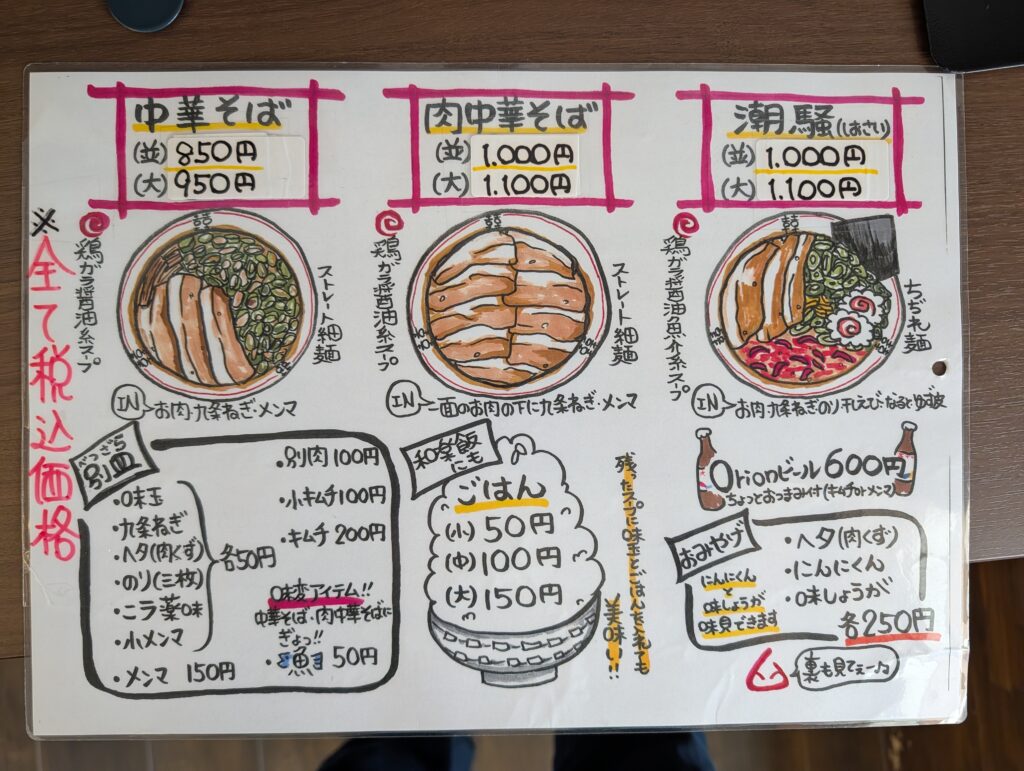 中華そば
(並) 850円
(大) 950円
肉中華そば
(並) 1.000円
(大) 1.100円
潮騒(しおさい)
(並) 1.000円
(大) 1.100円
※全て税込価格
鶏ガラ醤油系スープ
囍
ストレート細麺
IN お肉・九条ねぎ・メンマ
鶏ガラ醤油系スープ
囍
ストレート細麺
IN 一面のお肉の下に九条ねぎ・メンマ
鶏ガラ醤油魚介系スープ
囍
ちぢれ麺
IN お肉・九条ねぎ・のり・干しえび・なると・ゆず皮
べつざら
別皿
・味玉
・九条ねぎ
・ヘタ(肉くず)
・のり(三枚)
・ニラ薬味
・小メンマ
各50円
・メンマ 150円
・別肉 100円
・小キムチ 100円
・キムチ 200円
味変アイテム!!
中華そば・肉中華そばに
ぎょっ!!
・魚 50円
和楽飯
にも
ごはん
(小) 50円
(中) 100円
(大) 150円
残ったスープに味玉とごはんを入れても
美味ー!!
Orionビール 600円
ちょっとおつまみ付(キムチorメンマ)
おみやげ
にんにくん
と
味しょうが
味見できます
・ヘタ(肉くず)
・にんにくん
・味しょうが
各250円
裏も見てぇー♪